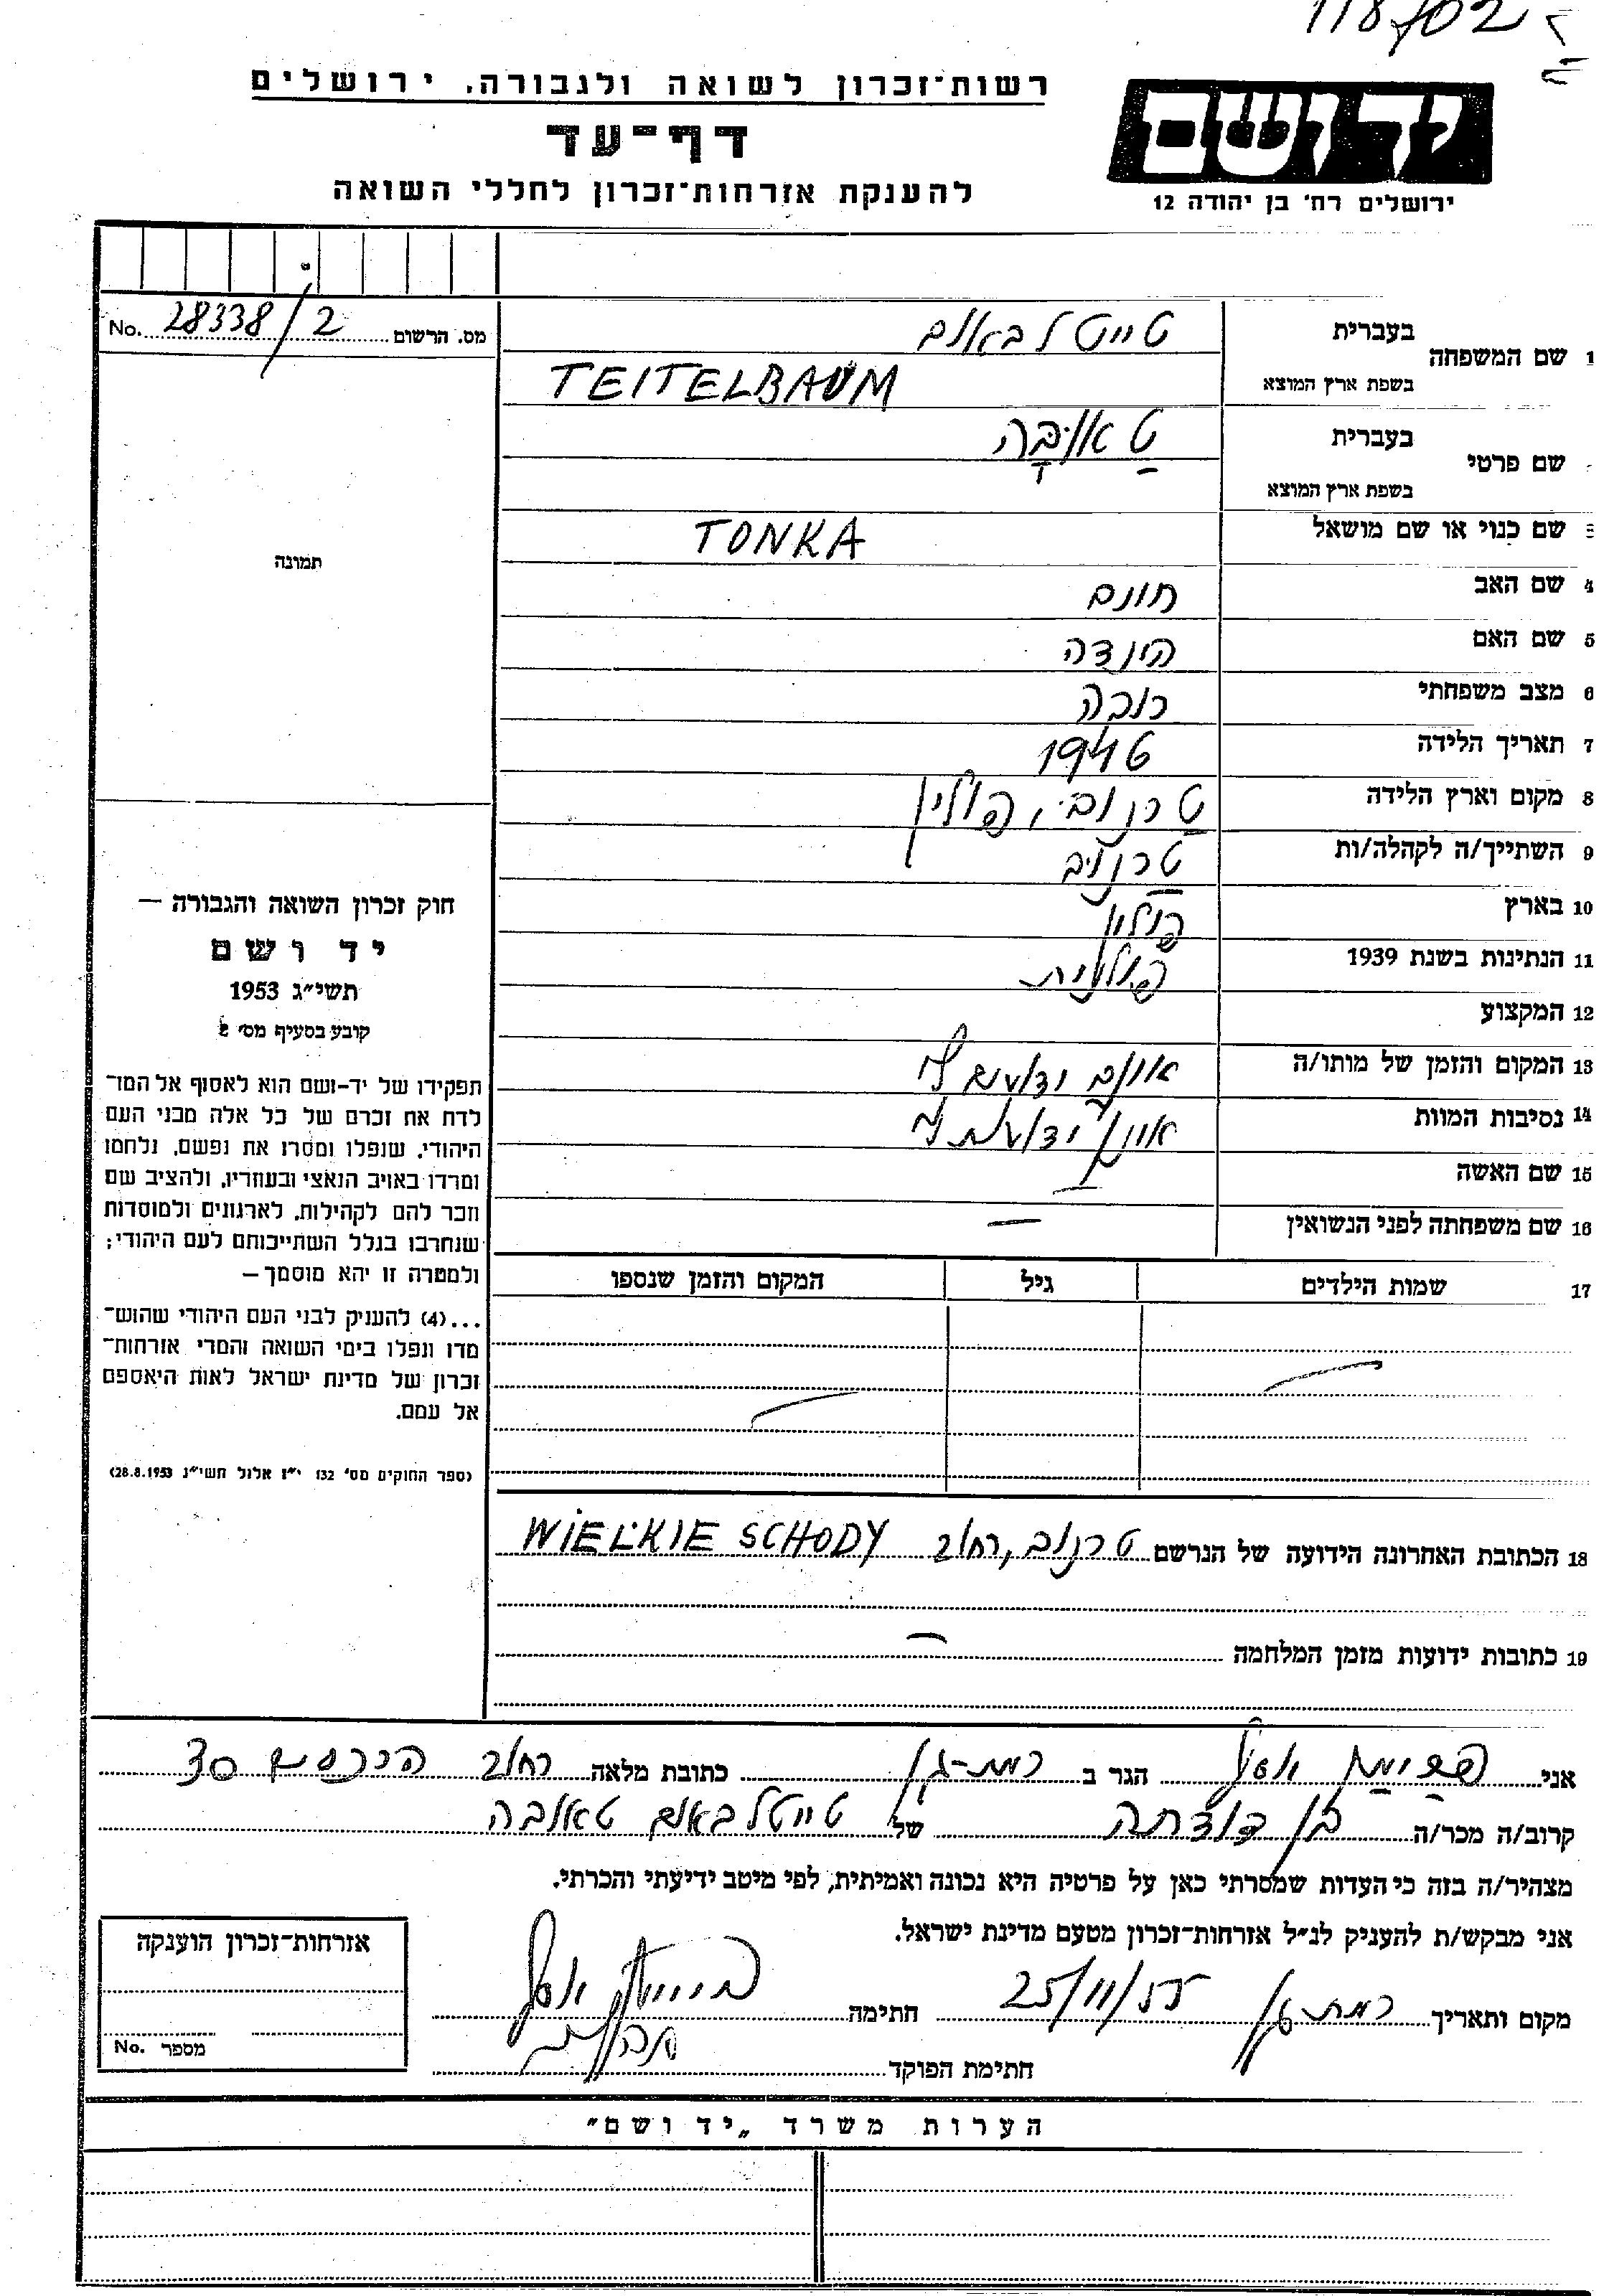 118/02
רשות־זכרון לשואה ולגבורה, ירושלים
דף־עד
להענקת אזרחות־זכרון לחללי השואה
ידושם
ירושלים רח' בן יהודה 12
מס. הרשום 28338/2 No.
1 שם המשפחה בעברית טייטלבאום
בשפת ארץ המוצא TEITELBAUM
שם פרטי בעברית טאובה
בשפת ארץ המוצא
שם כנוי או שם מושאל TONKA
4 שם האב
5 שם האם הינדה
6 מצב משפחתי רוקה
7 תאריך הלידה
8 מקום וארץ הלידה טרנוב, פולין
9 השתייך/ה לקהלה/ות טרנוב
10 בארץ פולין
11 הנתינות בשנת 1939 פולנית
12 המקצוע
13 המקום והזמן של מותו/ה אינם ידועים לי
14 נסיבות המוות אינן ידועות לי
15 שם האשה —
16 שם משפחתה לפני הנשואין —
17 שמות הילדים גיל המקום והזמן שנספו
תמונה
חוק זכרון השואה והגבורה —
יד ושם
תשי"ג 1953
קובע בסעיף מס' 2
תפקידו של יד-ושם הוא לאסוף אל המו־
לדת את זכרם של כל אלה מבני העם
היהודי, שנפלו ומסרו את נפשם, נלחמו
ומרדו באויב הנאצי ובעוזריו, ולהציב שם
וזכר להם לקהילות, לארגונים ולמוסדות
שנחרבו בגלל השתייכותם לעם היהודי;
ולמטרה זו יהא מוסמך —
...(4) להעניק לבני העם היהודי שהוש־
מדו ונפלו בימי השואה והמרי אזרחות־
זכרון של מדינת ישראל לאות היאספם
אל עמם.
(ספר החוקים מס' 132 י"ז אלול תשי"ג 28.8.1953)
18 הכתובת האחרונה הידועה של הנרשם טרנוב, רחוב WIELKIE SCHODY
19 כתובות ידועות מזמן המלחמה —
אני הגר ב רמת-גן כתובת מלאה רחוב 30
קרוב/ה מכר/ה בן דודתה של טייטלבאום טאובה
מצהיר/ה בזה כי העדות שמסרתי כאן על פרטיה היא נכונה ואמיתית, לפי מיטב ידיעתי והכרתי.
אני מבקש/ת להעניק לנ"ל אזרחות־זכרון מטעם מדינת ישראל.
מקום ותאריך רמת גן 25/11/55 חתימה
חתימת הפוקד
אזרחות־זכרון הוענקה
מספר No.
הערות משרד "יד ושם"